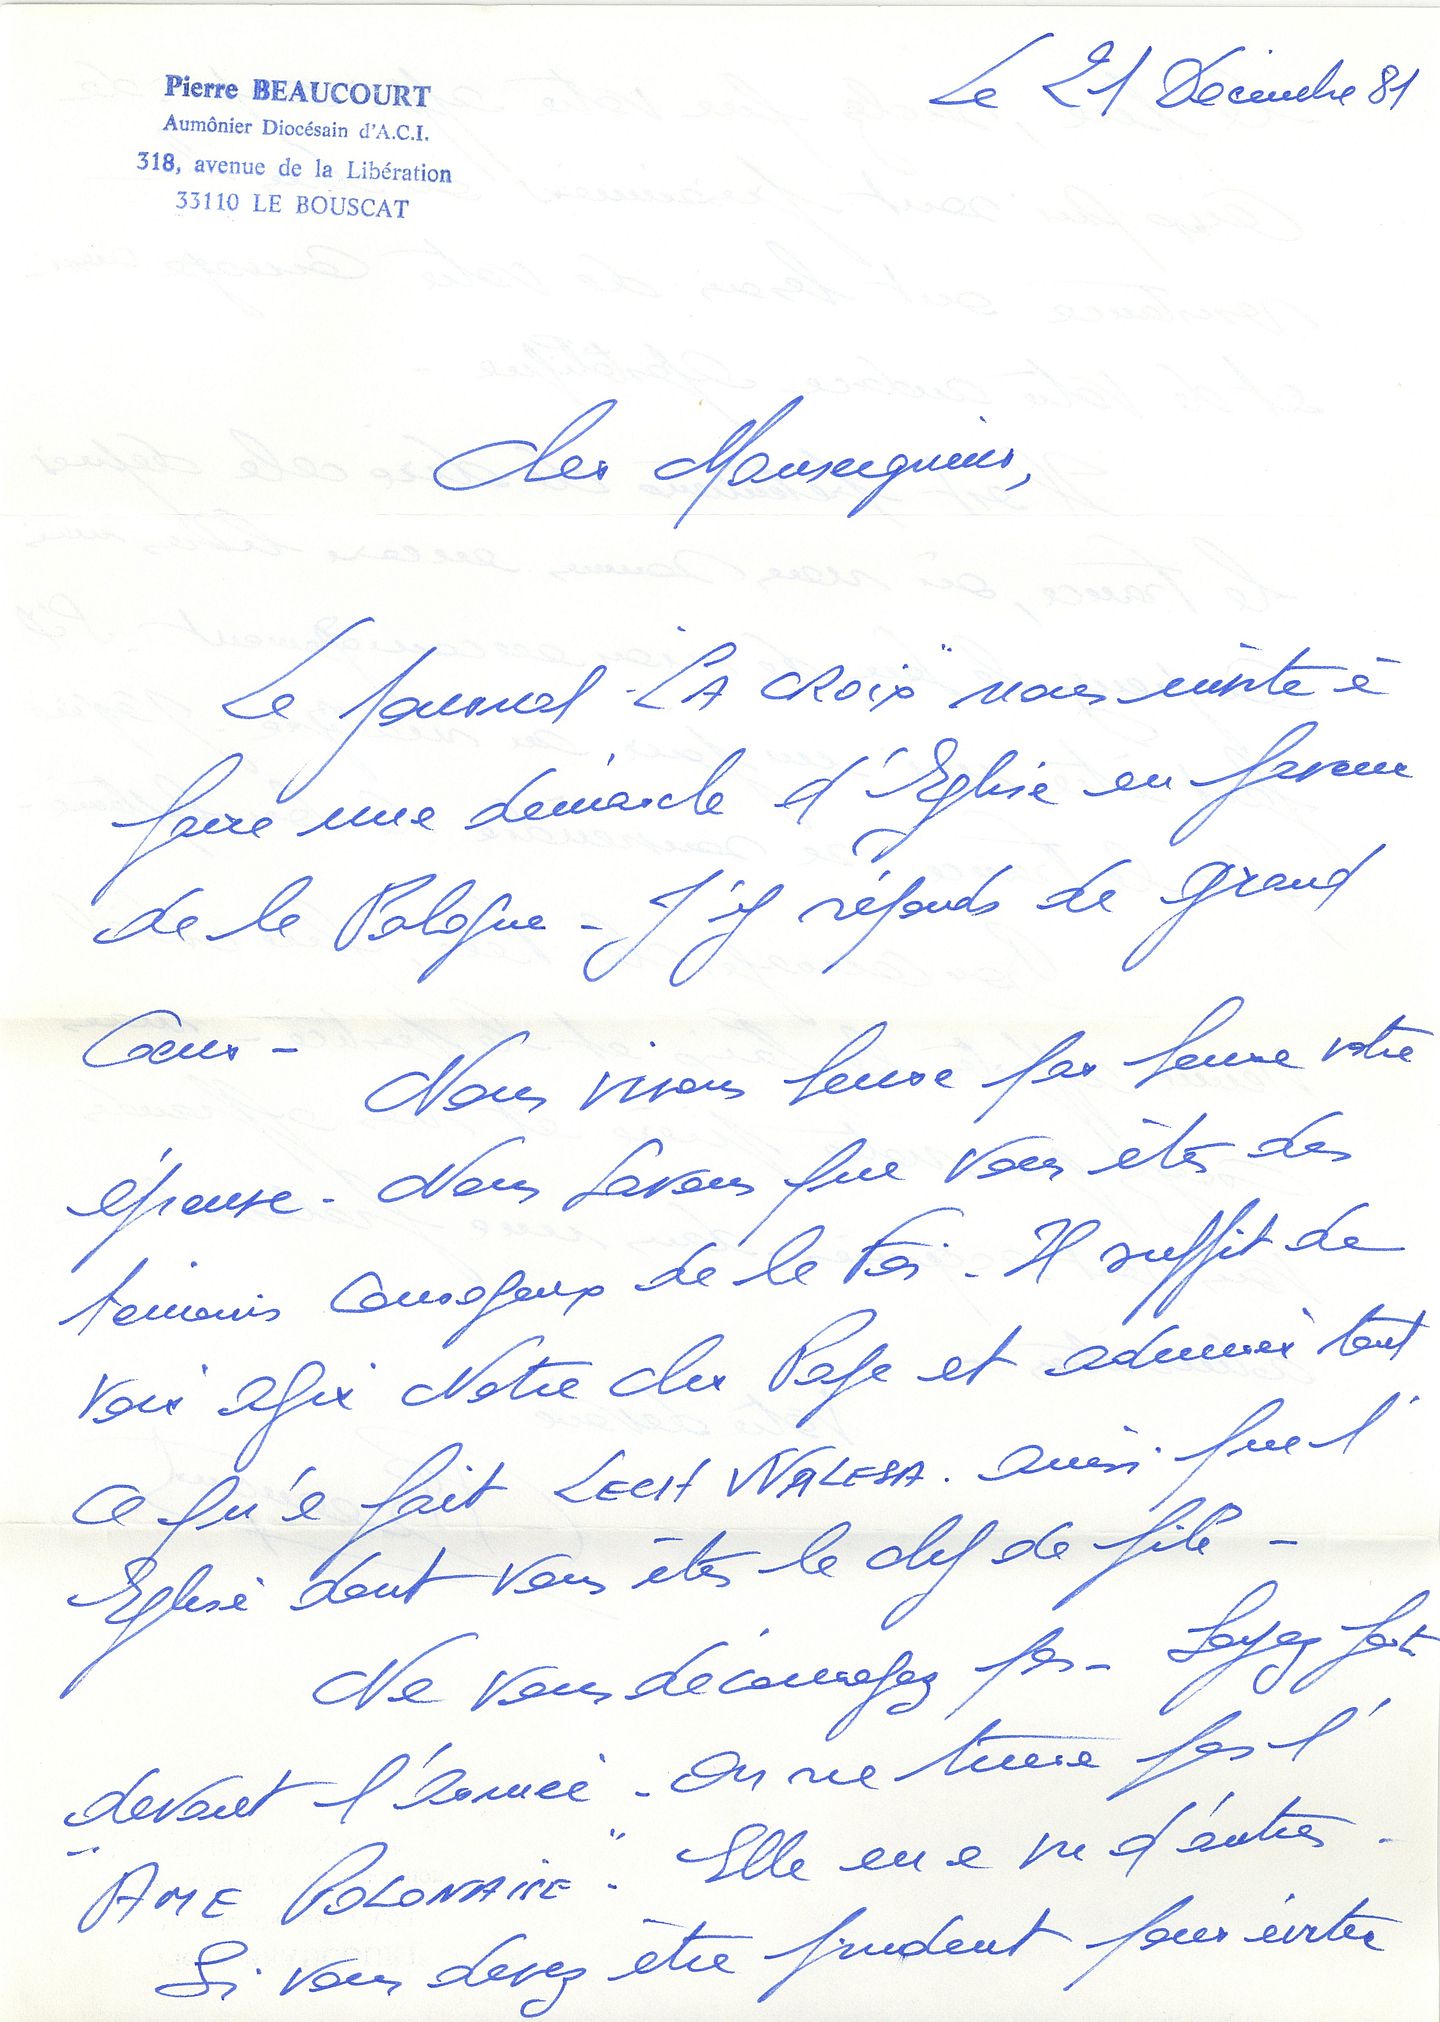 Pierre BEAUCOURT
Aumônier Diocésain d'A.C.I.
318, avenue de la Libération
33110 LE BOUSCAT
Le 21 Décembre 81
Cher Monseigneur,
Le journal "LA CROIX" nous invite à
faire une démarche d'Eglise en faveur
de la Pologne - J'y réponds de grand
Coeur -
Nous vivons heure par heure votre
épreuve - Nous savons que vous êtes des
témoins courageux de la Foi - Il suffit de
voir agir Notre cher Pape et admirer tout
ce qu'a fait LECH WALESA. ainsi que l'
Eglise dont vous êtes le chef de file -
Ne vous découragez pas - Soyez fort
devant l'armée - On ne tuera pas l'
"AME POLONAISE". Elle en a vu d'autres -
Si vous devez être prudent pour éviter